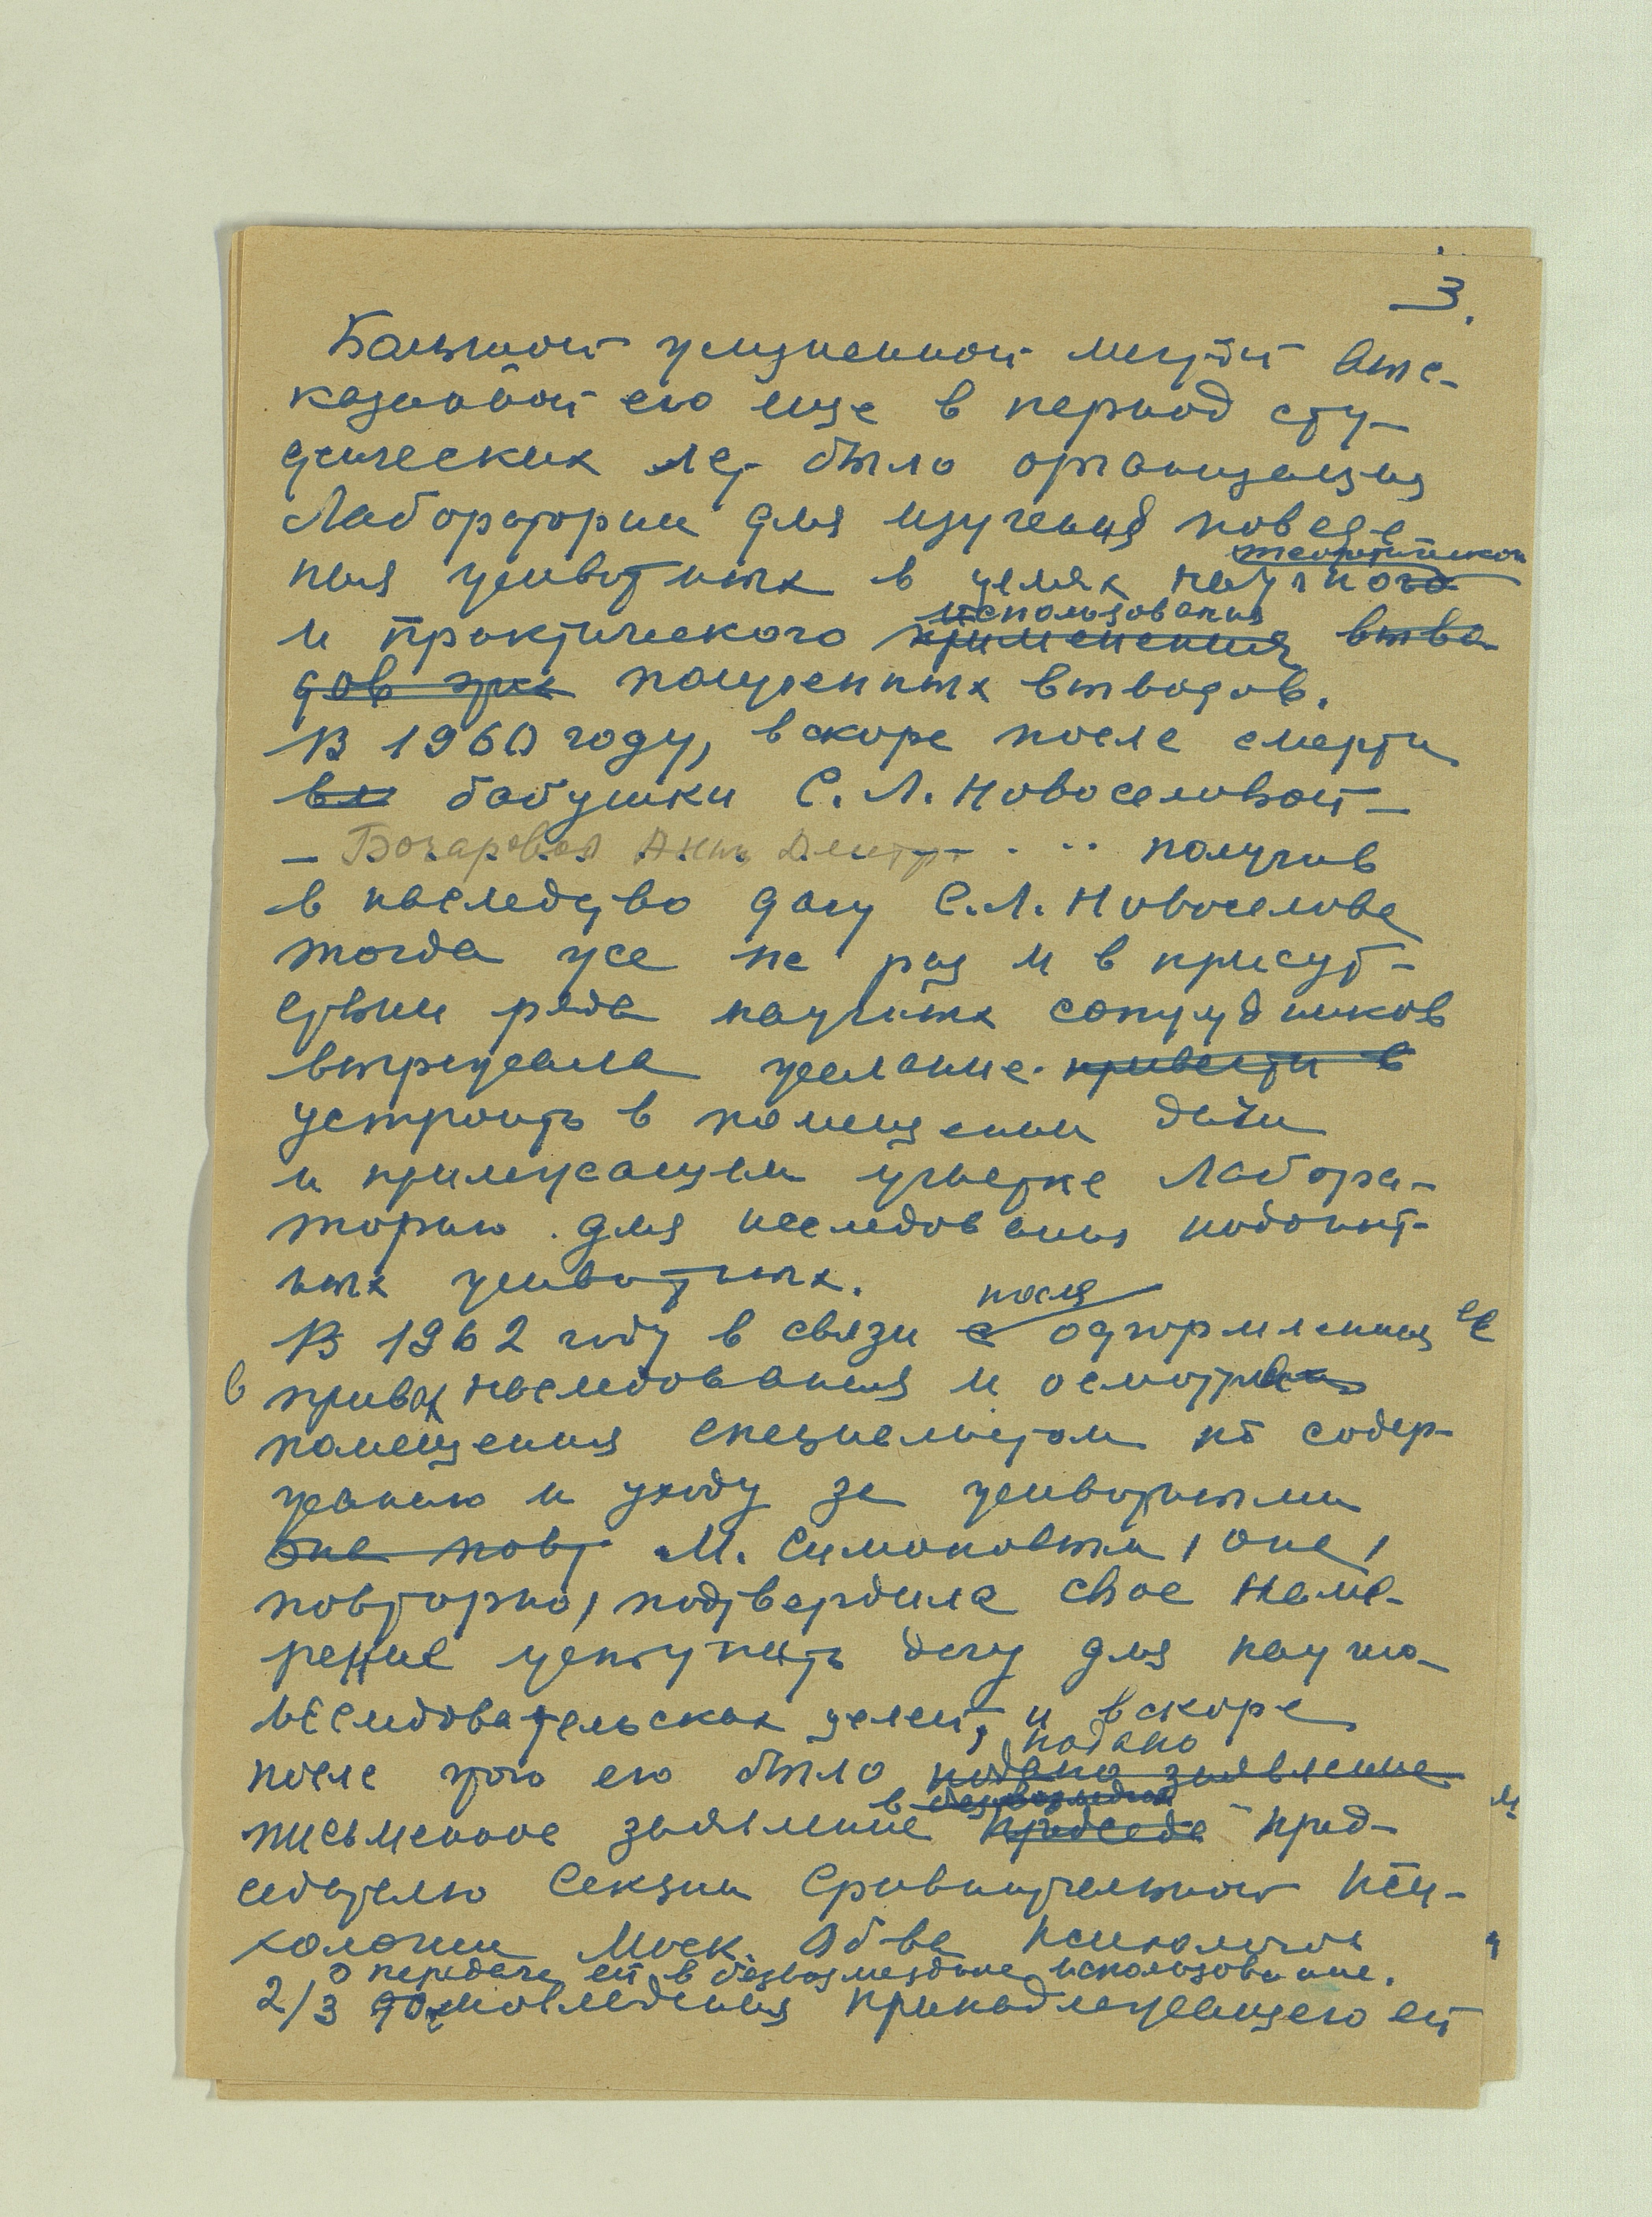 3.
Большой жизненной мечтой выс-
казанной ею еще в период сту-
денческих лет было организация
Лаборатории для изучения поведе
ния животных в целях научного теоретического
и практического применения использования выво-
дов при полученных выводов.
В 1960 году, вскоре после смерти
ее бабушки С. Л. Новоселовой –
– Бочаровой Анны Дмитр. . . . получив
в наследство дачу С.Л. Новоселова
тогда же не раз и в присут-
ствии ряда научных сотрудников
выражала желание привести в
устроить в помещении дачи
и прилежащем участке Лабора-
торию для исследования подопыт-
ных животных.
В 1962 году в связи с после оформления ее
в правах наследования и осмотра
помещения специалистом по содер-
жанию и уходу за животными
она повт М. Симоновым, она,
повторно, подтвердила свое наме-
рение уступить дачу для научно-
исследовательских целей, и вскоре
после того ею было подано заявление подано
письменное заявление в председа Пред-
седателю Секции Сравнительной Пси-
хологии Моск. Об-ва Психологов
о передаче ей в безвозмездное использование.
2/3 домовладения принадлежащего ей